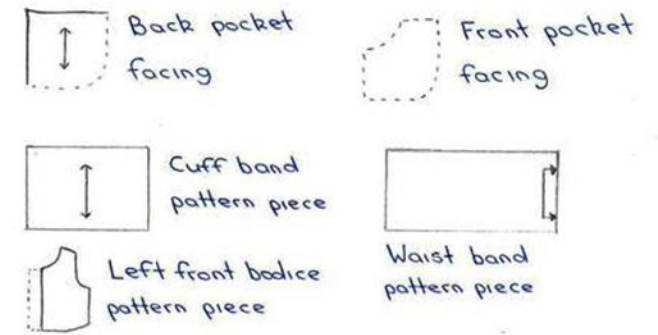 Back pocket
facing
Front pocket
facing
Cuff band
pattern piece
Waist band
pattern piece
Left front bodice
pattern piece